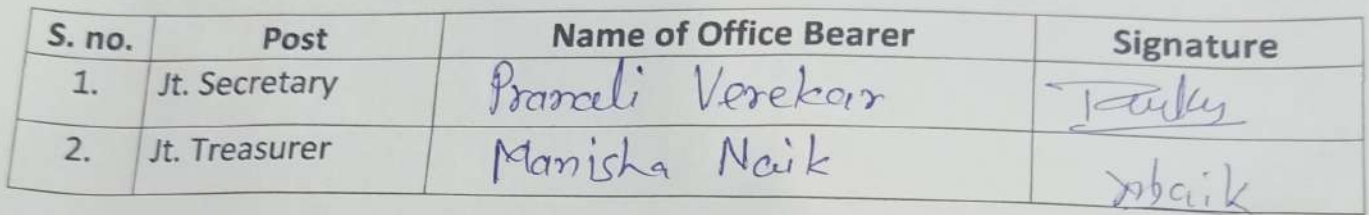 S. no. Post Name of Office Bearer Signature
1. Jt. Secretary Pranali Verekar
2. Jt. Treasurer Manisha Naik